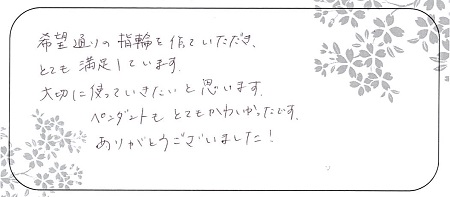 希望通りの指輪を作っていただき、
とても満足しています。
大切に使っていきたいと思います。
ペンダントもとてもかわいかったです。
ありがとうございました!